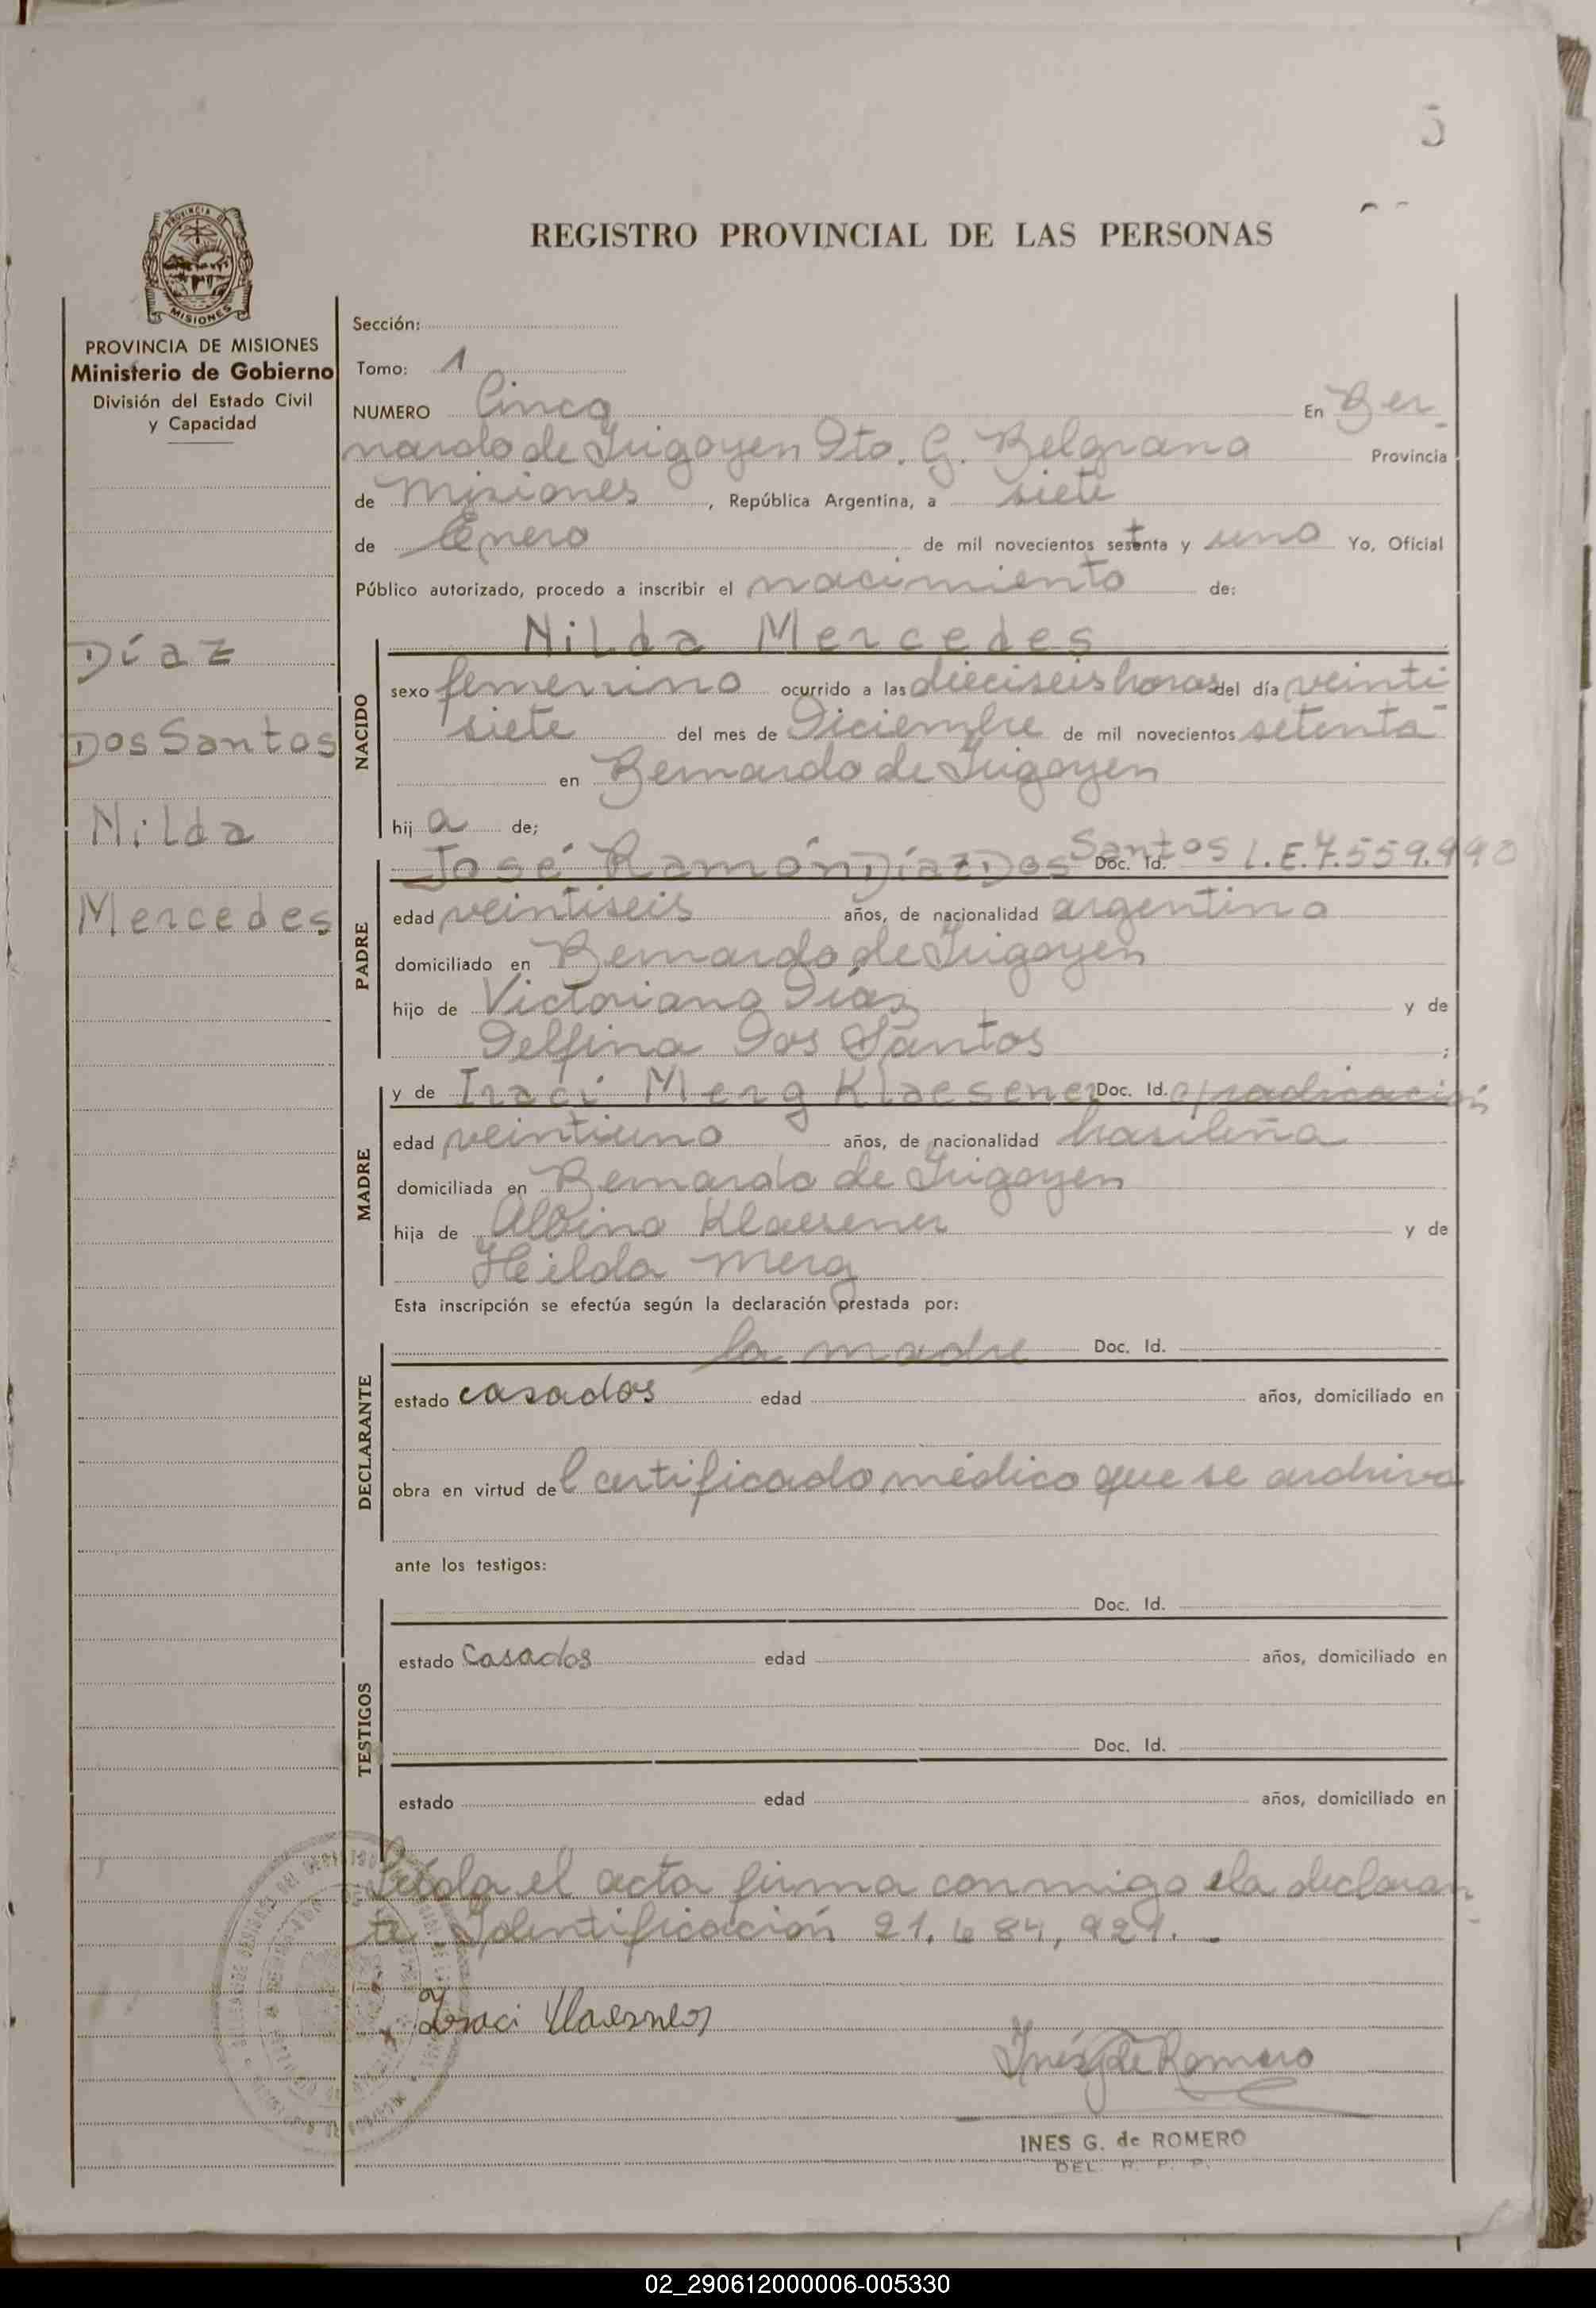 5
REGISTRO PROVINCIAL DE LAS PERSONAS
PROVINCIA DE
MISIONES
PROVINCIA DE MISIONES
Ministerio de Gobierno
División del Estado Civil
y Capacidad
Díaz
Dos Santos
Nilda
Mercedes
Sección:
Tomo: 1
NUMERO Cinco En Ber-
nardo de Irigoyen Dto. G. Belgrano Provincia
de Misiones, República Argentina, a siete
de Enero de mil novecientos setenta y uno Yo, Oficial
Público autorizado, procedo a inscribir el nacimiento de:
NACIDO
Nilda Mercedes
sexo femenino ocurrido a las dieciseis horas del día veinti-
siete del mes de Diciembre de mil novecientos setenta
en Bernardo de Irigoyen
hij a de;
PADRE
José Ramón Díaz Dos Santos Doc. Id. L.E.7.559.990
edad veintiseis años, de nacionalidad argentino
domiciliado en Bernardo de Irigoyen
hijo de Victoriano Díaz y de
Delfina Dos Santos ;
MADRE
y de Iraci Merg Klaesener Doc. Id. c/radicación
edad veintiuno años, de nacionalidad brasileña
domiciliada en Bernardo de Irigoyen
hija de Albino Klaesener y de
Hilda Merg
Esta inscripción se efectúa según la declaración prestada por:
DECLARANTE
la madre Doc. Id.
estado casados edad años, domiciliado en
obra en virtud del certificado médico que se archiva
ante los testigos:
TESTIGOS
Doc. Id.
estado Casados edad años, domiciliado en
Doc. Id.
estado edad años, domiciliado en
Leída el acta firma conmigo la declaran-
te. Identificación 21.684,921.-
x Iraci Klaesner
Inés G de Romero
INES G. de ROMERO
DEL. R. P. P.
02_290612000006-005330